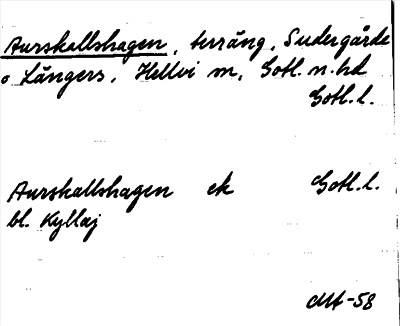 Aurskallshagen, terräng, Sudergårde
o Längers, Hellvi sn, Gotl. n. hd
Gotl. l.
Aurskallshagen ek Gotl. l.
bl. Kyllaj
MA-58